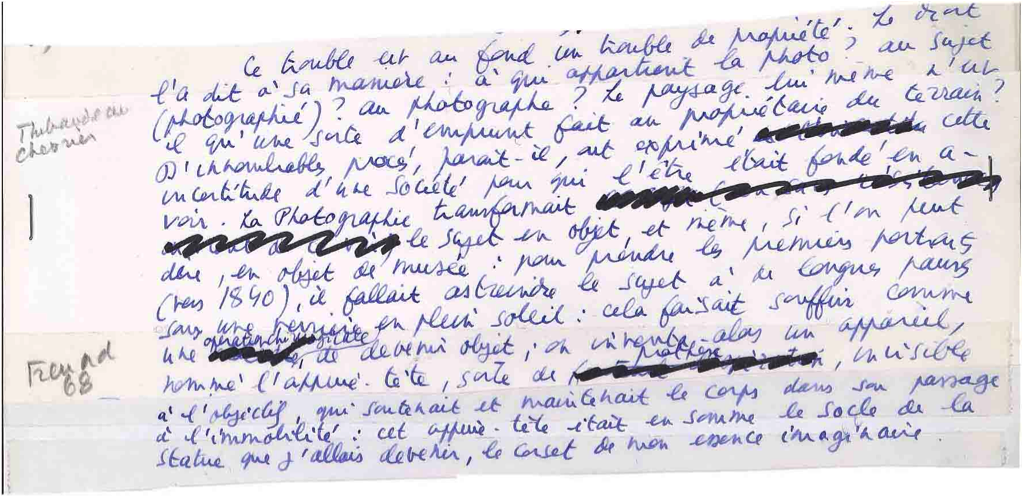 Ce trouble est au fond un trouble de propriété. Le droit
l'a dit à sa manière : à qui appartient la photo ? au sujet
(photographié) ? au photographe ? Le paysage lui même n'est
il qu'une sorte d'emprunt fait au propriétaire du terrain ?
Thibaudeau
Chevrier
D'innombrables procès, paraît-il, ont exprimé cette
incertitude d'une société pour qui l'être était fondé en a-
voir. La Photographie transformait
le sujet en objet, et même, si l'on peut
dire, en objet de musée : pour prendre les premiers portraits
(vers 1840), il fallait astreindre le sujet à de longues pauses
sous une verrière en plein soleil : cela faisait souffrir comme
une opération chirurgicale de devenir objet ; on inventa alors un appareil,
Freund
68
nommé l'appuie-tête, sorte de prothèse, invisible
à l'objectif, qui soutenait et maintenait le corps dans son passage
à l'immobilité : cet appuie-tête était en somme le socle de la
statue que j'allais devenir, le corset de mon essence imaginaire.